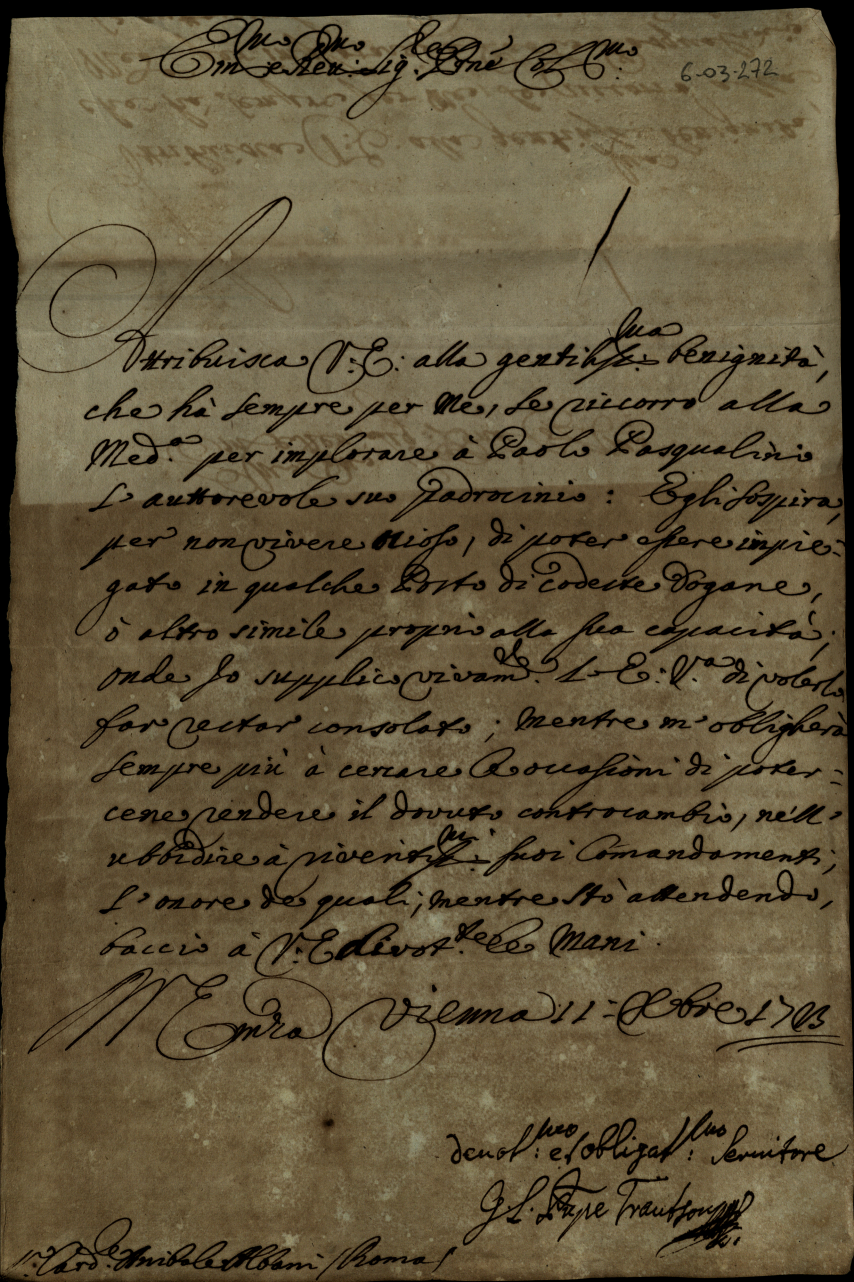 Em.mo e Rev.mo Sig.re Pne Col.mo:
6-03-272
Attribuisca V: E: alla gentiliss:ma sua benignità,
che hà sempre per me, se riccorro alla
Med.a per implorare à Paolo Pasqualini
l'auttorevole suo Padrocinio: Egli sospira,
per non vivere otioso, di poter essere impie=
gato in qualche Posto di codeste Dogane,
ò altro simile proprio alla sua capacità;
onde Io supplico vivam.te l'E: V.a di volerlo
far restar consolato; mentre m'obligherà
sempre più à cercare le occasioni di poter=
cene rendere il dovuto contracambio, nell'
ubbidire à riveritiss:mi suoi Comandamenti;
l'onore de quali, mentre stò attendendo,
baccio à V: E divot.te le Mani.
Vienna 11= Xbre 1713
devot:mo et obligat:mo Servitore
Trautson
Card.e Anibale Albani / Roma /